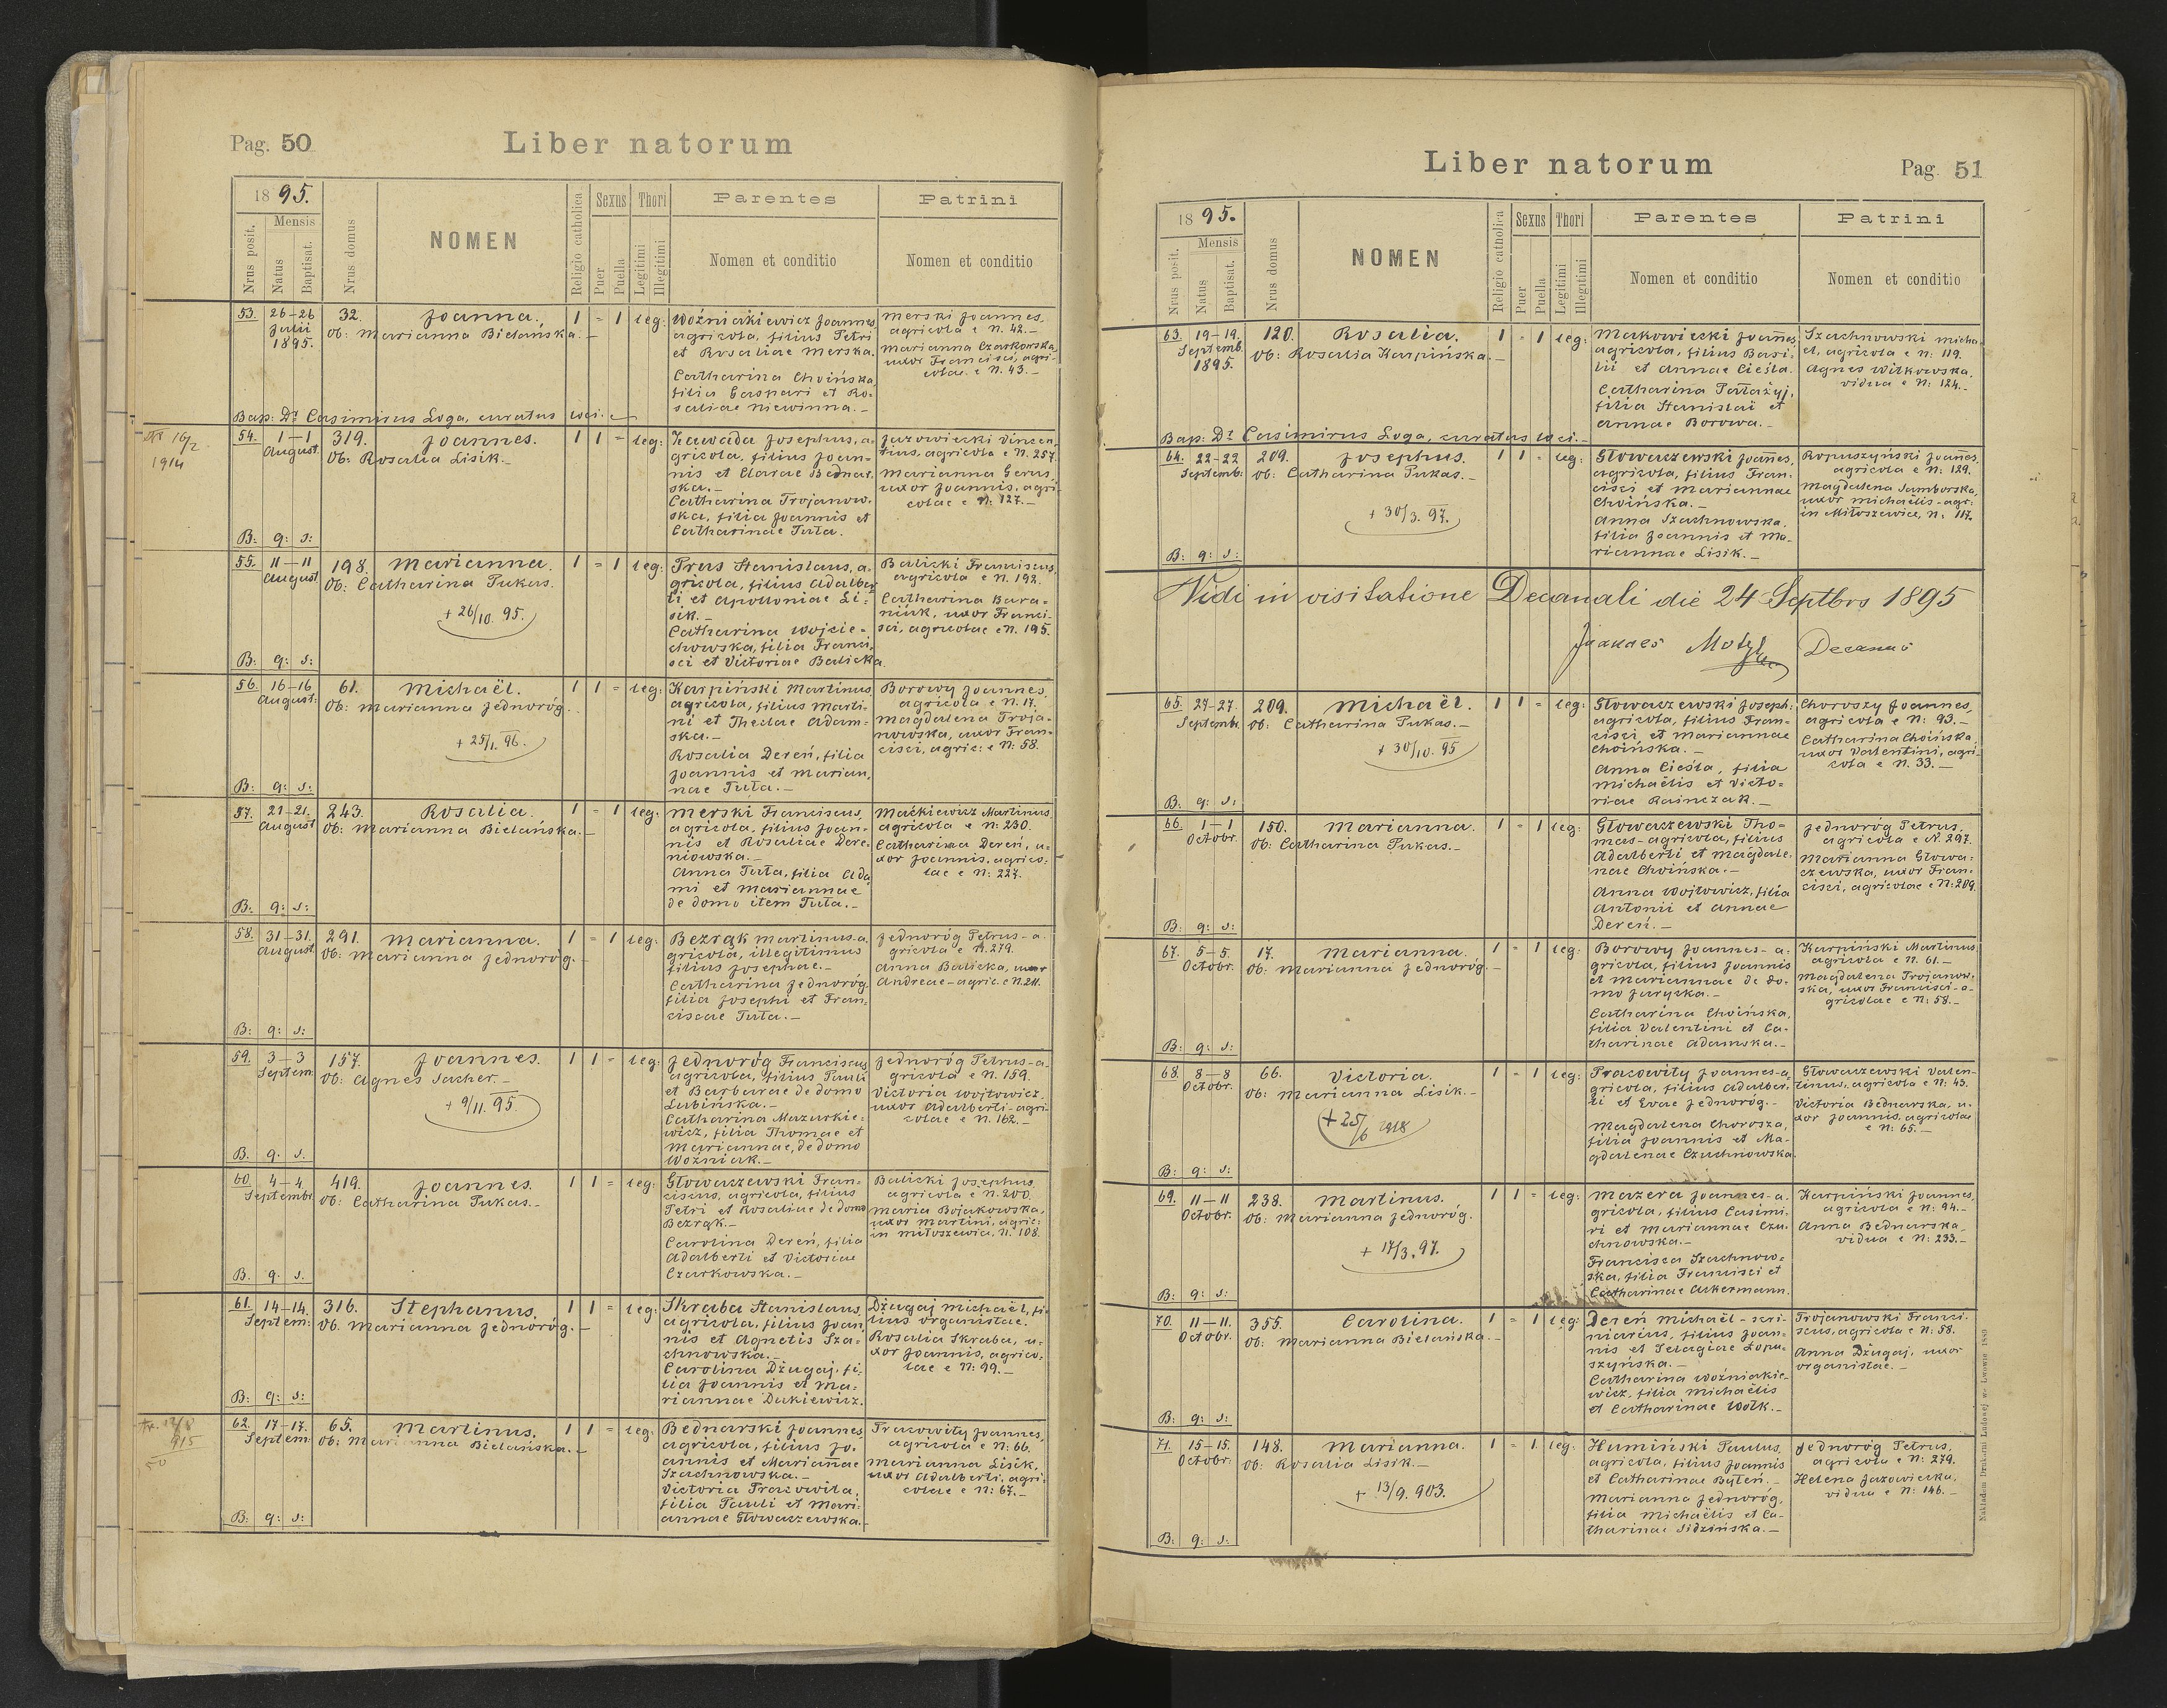 Pag. 50
Liber natorum
1895.
Nrus posit.
Mensis
Natus
Baptisat.
Nrus domus
NOMEN
Religio catholica
Sexus
Puer
Puella
Thori
Legitimi
Illegitimi
Parentes
Nomen et conditio
Patrini
Nomen et conditio
53. 26-26 32. Joanna. 1 = 1 leg:
Julii Ob: Marianna Bielańska.-
1895.
Woźniakiewicz Joannes,
agricola, filius Petri
et Rosaliae Merska.
Catharina Choińska,
filia Gaspari et Ro=
saliae Niewinna.-
Merski Joannes,
agricola e N. 42.-
Marianna Czarkowska,
uxor Francisci, agri-
colae e N. 43.-
Bap: Dr Casimirus Loga, curatus loci.
16/2
1914
54. 1-1 319. Joannes. 1 1 = leg:
August. Ob: Rosalia Lisik.-
Zawada Josephus, a-
gricola, filius Joan=
nis et Clarae Bednar,
ska.-
Catharina Trojanow,
ska, filia Joannis et
Catharinae Tuta.
Jazowiecki Vincen,
tius, agricola e N. 257.
Marianna Gerus,
uxor Joannis, agri-
colae e N: 127.-
B: q: s:
55. 11-11 198. Marianna. 1 = 1 leg:
August Ob: Catharina Pukas.
+ 26/10. 95.
Prus Stanislaus, a-
gricola, filius Adalber
ti et Apolloniae Li=
sik.-
Catharina Wojcie=
chowska, filia Franci,
sci et Victoriae Balicka.
Balicki Franciscus,
agricola e N. 192.
Catharina Bara=
niuk, uxor Franci-
sci, agricolae e N. 195.
B: q: s:
56. 16-16 61. Michaël. 1 1 = leg:
August: Ob: Marianna Jednoróg.
+ 25/1. 96.
Karpiński Martinus,
agricola, filius Marti-
ni et Theclae Adam=
ska.-
Rosalia Dereń, filia
Joannis et Marian,
nae Tuta.-
Borowy Joannes,
agricola e N. 17.
Magdalena Troja-
nowska, uxor Fran-
cisci, agric: e N: 58.
B: q: s:
57. 21-21. 243. Rosalia. 1 = 1 leg:
August Ob: Marianna Bielańska.-
Merski Franciscus,
agricola, filius Joan-
nis et Rosaliae Dere-
niowska.-
Anna Tuta, filia Ada
mi et Mariannae
de domo item Tuta.-
Maćkiewicz Martinus,
agricola e N: 230.
Catharina Dereń, u=
xor Joannis, agrico:
lae e N: 227.
B: q: s:
58. 31-31. 291. Marianna. 1 = 1 leg:
August. Ob: Marianna Jednoróg.-
Bezrąk Martinus-a.
gricola, illegitimus
filius Josephae.-
Catharina Jednoróg,
filia Josephi et Fran:
ciscae Tuta.-
Jednoróg Petrus-a.
gricola e N. 279.
Anna Balicka, uxor
Andreae-agric. e N. 211.
B: q: s:
59. 3-3 157. Joannes. 1 1 = leg:
Septem: Ob: Agnes Sacher.-
+ 9/11. 95.
Jednoróg Franciscus,
agricola, filius Pauli
et Barbarae de domo
Lubińska.-
Catharina Mazurkie=
wicz, filia Thomae et
Mariannae, de domo
Woźniak.-
Jednoróg Petrus-a
gricola e N. 159.
Victoria Wojtowicz,
uxor Adalberti-agri-
colae e N. 162.-
B. q. s.
60. 4-4. 419. Joannes. 1 1 = leg:
Septembr. Ob: Catharina Pukas.-
Głowaczewski Fran=
ciscus, agricola, filius
Petri et Rosaliae de domo
Bezrąk.-
Carolina Dereń, filia
Adalberti et Victoriae
Czarkowska.-
Balicki Josephus,
agricola e N. 200.
Maria Bojakowska,
uxor Martini, agric:
in Miłoszewice, N. 108.
B. q. s.
61. 14-14. 316. Stephanus. 1 1 = leg:
Septem: Ob. Marianna Jednoróg.-
Skraba Stanislaus,
agricola, filius Joan,
nis et Agnetis Sza=
chnowska.-
Carolina Dżugaj, fi-
lia Joannis et Ma-
riannae Dukiewicz.
Dżugaj Michaël, fi-
lius organistae.
Rosalia Skraba, u=
xor Joannis, agrico=
lae e N: 99.-
B: q: s:
12/8
915
62. 17-17. 65. Martinus. 1 1 = leg:
Septem: Ob: Marianna Bielańska.-
Bednarski Joannes,
agricola, filius Jo.
annis et Mariañae
Szachnowska.-
Victoria Pracowita,
filia Pauli et Mari-
annae Głowaczewska.-
Pracowity Joannes,
agricola e N: 66.
Marianna Lisik,
uxor Adalberti, agri-
colae e N: 67.-
B: q: s:
Liber natorum
Pag. 51
1895.
Nrus posit.
Mensis
Natus
Baptisat.
Nrus domus
NOMEN
Religio catholica
Sexus
Puer
Puella
Thori
Legitimi
Illegitimi
Parentes
Nomen et conditio
Patrini
Nomen et conditio
63. 19-19. 120. Rosalia. 1 - 1 leg:
Septemb. Ob: Rosalia Karpińska.-
1895.
Makowiecki Joañes,
agricola, filius Basi-
lii et Annae Cieśla.
Catharina Patłażyj,
filia Stanislai et
Annae Borowa.-
Szachnowski Micha
el, agricola e N: 119.
Agnes Witkowska,
vidua e N: 124.-
Bap: Dr Casimirus Loga, curatus loci.-
64. 22-22 209. Josephus. 1 1 = leg:
Septemb: Ob: Catharina Pukas.-
+ 30/3. 97.
Głowaczewski Joañes,
agricola, filius Fran=
cisci et Mariannae
Choińska.-
Anna Szachnowska,
filia Joannis et Ma-
riannae Lisik.-
Ropuszyński Joañes,
agricola e N: 129.
Magdalena Samborska,
uxor Michaëlis-agr:
in Miłoszewice, N: 117.
B: q: s:
Vidi in visitatione Decanali die 24 Septbrs 1895
Joannes Motyl Decanus
65. 27-27. 209. Michaël. 1 1 = leg:
Septemb: Ob: Catharina Pukas.-
+ 30/10. 95
Głowaczewski Joseph:
agricola, filius Fran=
cisci et Mariannae
Choińska.-
Anna Cieśla, filia
Michaëlis et Victo=
riae Rainczak.-
Choroszy Joannes,
agricola e N: 93.-
Catharina Choińska
uxor Valentini, agri
cola e N. 33.-
B: q: s:
66. 1-1 150. Marianna. 1 - 1 leg:
Octobr. Ob: Catharina Pukas.-
Głowaczewski Tho=
mas-agricola, filius
Adalberti et Magdale,
nae Choińska.-
Anna Wojtowicz, filia
Antonii et Annae
Dereń.-
Jednoróg Petrus,
agricola e N. 297.
Marianna Głowa:
czewska, uxor Fran=
cisci, agricolae e N: 209.
B: q: s:
67. 5-5 17. Marianna. 1 - 1 leg:
Octobr. Ob: Marianna Jednoróg.-
Borowy Joannes-a-
gricola, filius Joannis
et Mariannae de do-
mo Jarycka.-
Catharina Choińska,
filia Valentini et Ca-
tharinae Adamska.-
Karpiński Martinus
agricola e N. 61.-
Magdalena Trojanow.
ska, uxor Francisci-a-
gricolae e N: 58.-
B: q: s:
68. 8-8 66. Victoria. 1 - 1 leg:
Octobr. Ob: Marianna Lisik.-
+25/6 1918
Pracowity Joannes-a
gricola, filius Adalber-
ti et Evae Jednoróg.-
Magdalena Chorosza,
filia Joannis et Ma-
gdalenae Czuchnowska.
Głowaczewski Valen-
tinus, agricola e N: 43.
Victoria Bednarska, u-
xor Joannis, agricolae
e N: 65.-
B: q: s:
69. 11-11 238. Martinus. 1 1 - leg:
Octobr. Ob: Marianna Jednoróg.
+ 17/3. 97.
Mazera Joannes-a.
gricola, filius Casimi.
ri et Mariannae Czu.
chnowska.-
Francisca Szachnow=
ska, filia Francisci et
Catharinae Ackermann.
Karpiński Joannes,
agricola e N: 94.-
Anna Bednarska
vidua e N: 233.-
B: q: s:
70. 11-11. 355. Carolina. 1 - 1 leg:
Octobr. Ob: Marianna Bielańska.-
Dereń Michaël-scri-
niarius, filius Joan=
nis et Pelagiae Łopu=
szyńska.-
Catharina Woźniakie-
wicz, filia Michaëlis
et Catharinae Wołk.-
Trojanowski Franci.
scus, agricola e N: 58.
Anna Dżugaj, uxor
organistae.-
B: q: s:
71. 15-15. 148. Marianna. 1 - 1. leg:
Octobr. Ob: Rosalia Lisik.-
+ 13/9. 903.
Humiński Paulus,
agricola, filius Joannis
et Catharinae Byteń.-
Marianna Jednoróg,
filia Michaëlis et Ca-
tharinae Sidzińska.-
Jednoróg Petrus,
agricola e N: 279.
Helena Jazowiecka,
vidua e N: 146.-
B: q: s:
Nakładem Drukarni Ludowej we Lwowie 1889